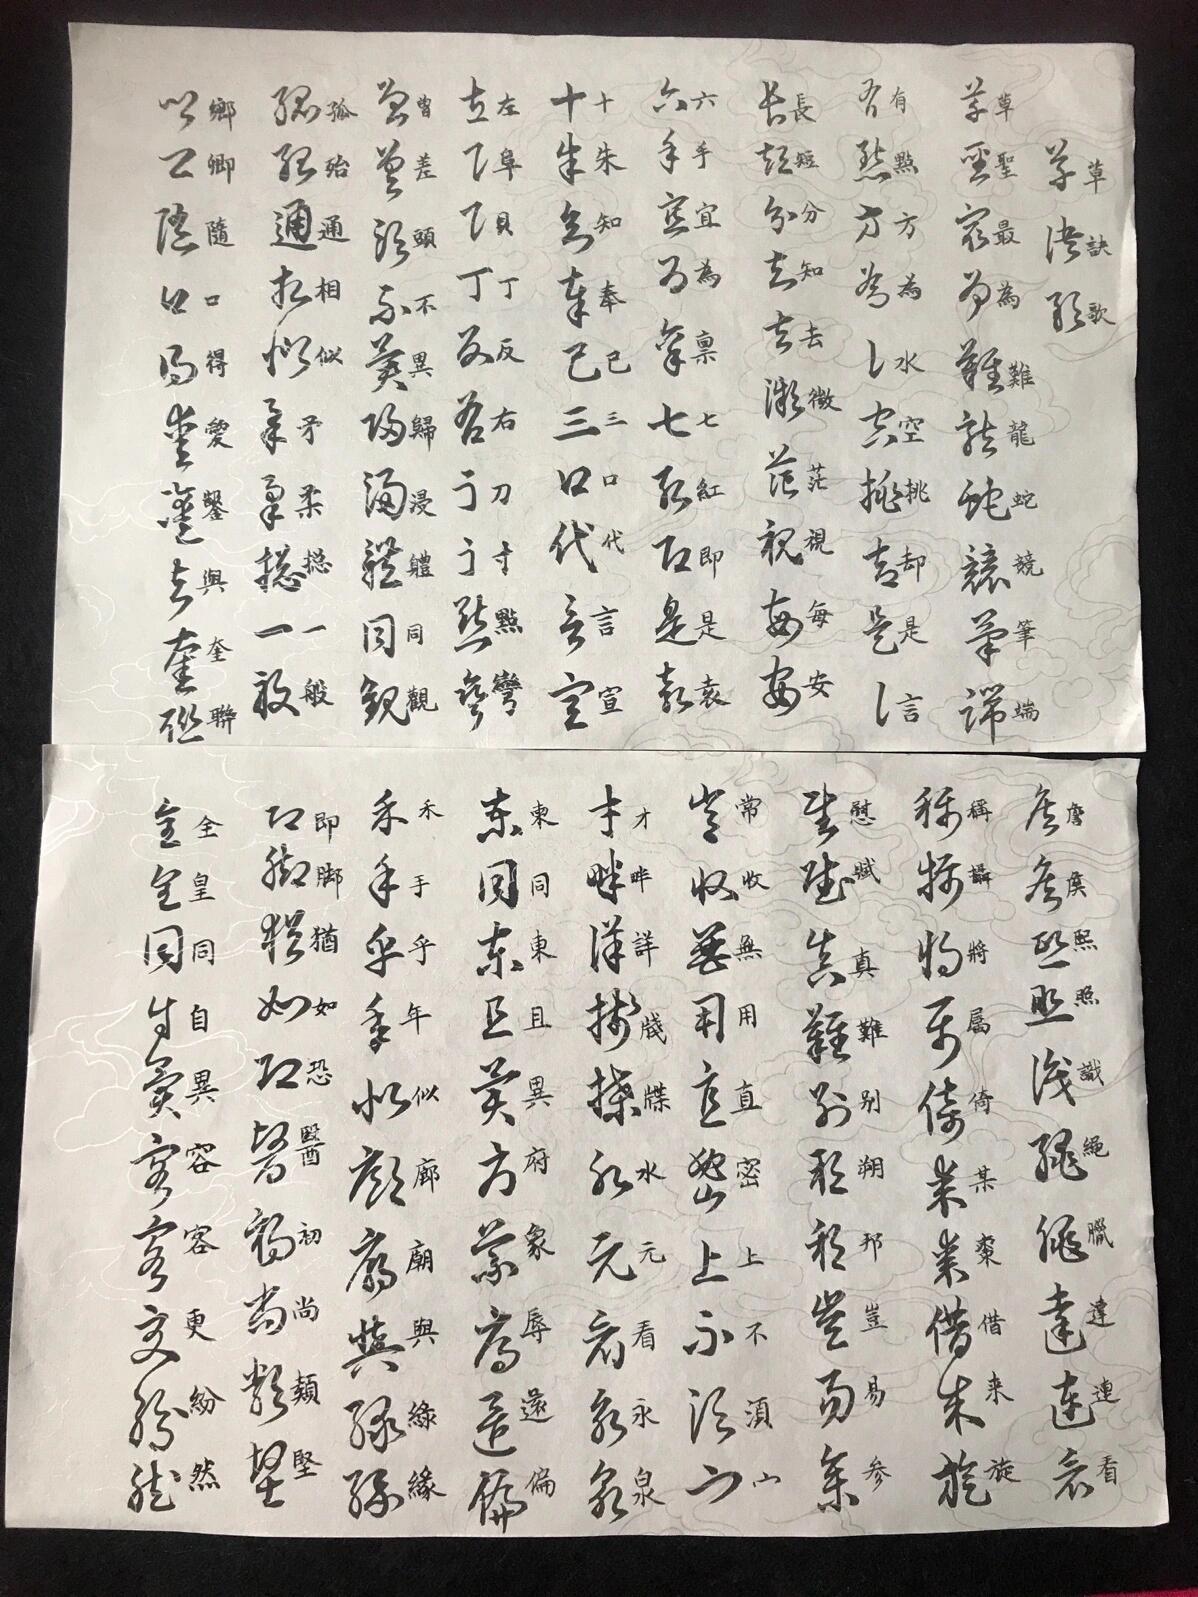 草訣歌
草聖最為難龍蛇競筆端
有點方為水空挑却是言
長短分知去微茫視每安
六手宜為禀七紅即是袁
十朱知奉已三口代言宣
左阜貝丁反右刀寸點彎
曾差頭不異歸浸體同觀
孤殆通相似矛柔搃一般
鄉卿隨口得愛鑿與奎聯
詹虞熙照識繩臘達連看
稱攝將属倚某棗借来旋
慰賦真難别朔邦豈易参
常收無用直密上不湏山
才畔詳牋牒水元看永泉
東同東且異府象辱還偏
禾手乎年似廊廟與綠緣
即脚猶如恐醫初尚類堅
全皇同自異容客更紛然